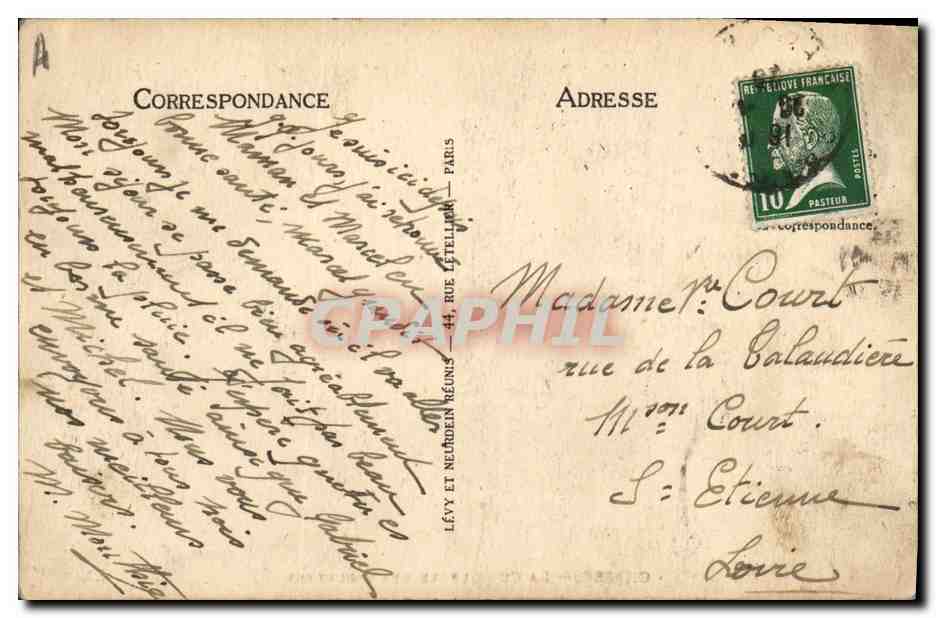 A
CORRESPONDANCE
ADRESSE
REPUBLIQUE FRANÇAISE
POSTES
10
PASTEUR
correspondance.
Je suis ici depuis
qq jours j'ai retrouvé
Maman et Marcel en
bonne santé, Marcel
toujours je me demande
Mon séjour se passe bien agréablement
malheureusement il ne fait pas beau
toujours la pluie. J'espère que
en bonne santé ainsi que Gabriel
et Michel. Nous vous
envoyons à tous nos
meilleurs
baisers.
M.
LÉVY ET NEURDEIN RÉUNIS — 44, RUE LETELLIER — PARIS
CPAPHIL
Madame Vve Court
rue de la Talaudière
Mson Court.
St Etienne
Loire